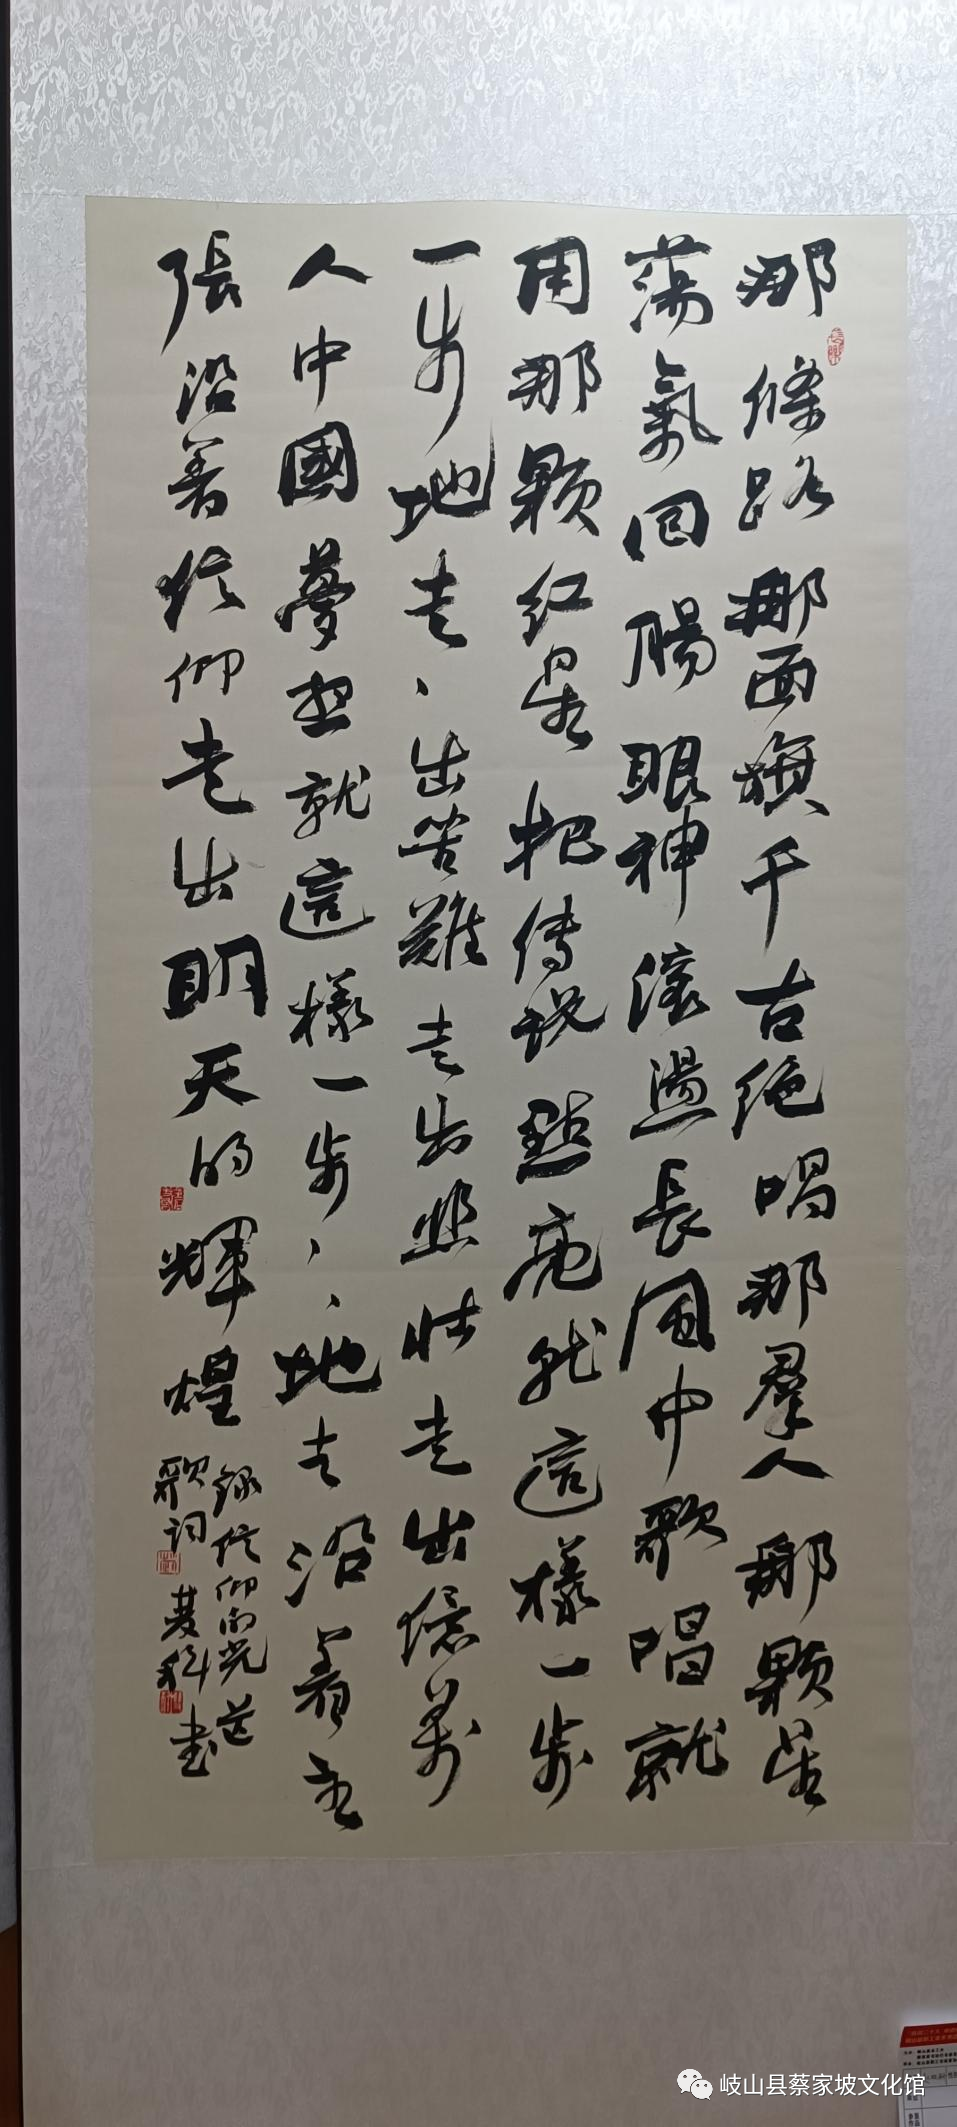 那條路那面旗千古絕唱那羣人那顆星
蕩氣回腸眼神滾燙長風中歌唱就
用那顆红星把傳説點亮就這樣一步
一步地走、出苦難走出悲壯走出億萬
人中國夢想就這樣一步、、地走沿着主
張沿著信仰走出明天的輝煌
録信仰的光芒
歌词
科书
岐山县蔡家坡文化馆